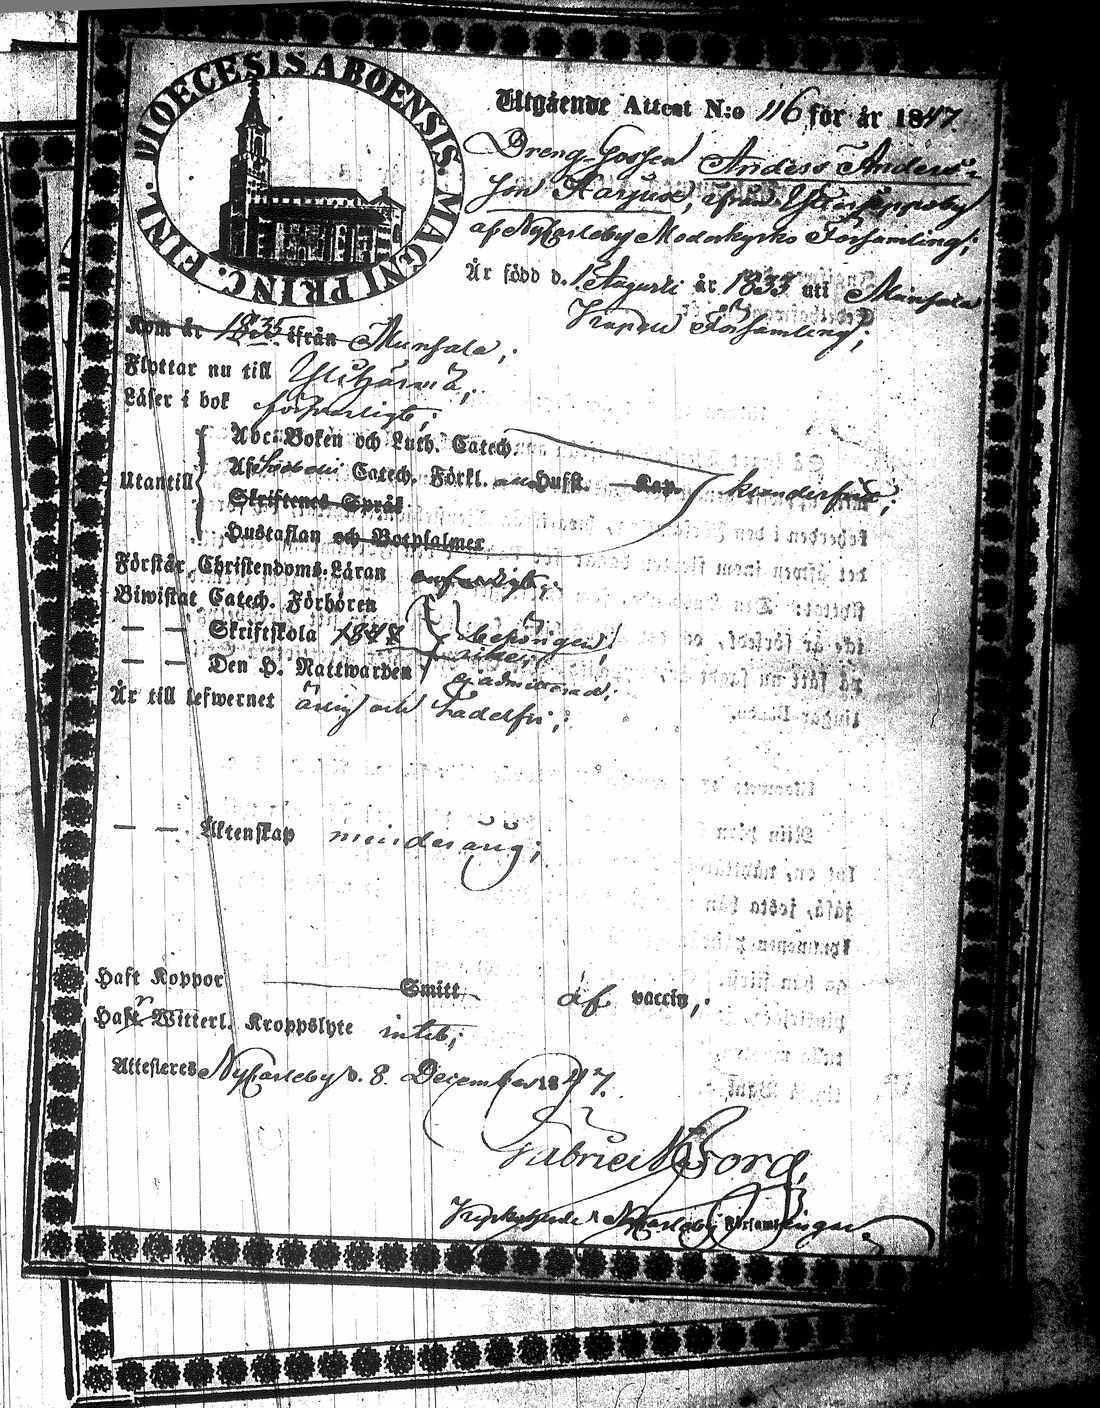 DIOECESIS ABOENSIS. MAGNI PRINC. FINL.
Utgående Attest N:o 116 för år 1847.
Dreng-Gossen Anders Anders-
son Harjux, ifrån Ytterjeppoby
af NyCarleby Moderkyrko Församling;
Är född d. 1 Augusti år 1833 uti Munsala
Capell Församling;
Kom år 1835 ifrån Munsala;
Flyttar nu till Ylihärmä;
Läser i bok försvarligt;
Utantill
Abc-Boken och Luth. Catech.
Catech. Förkl. Hufst. Kap.
Skriftenes Språk
Hustaflan och Botpsalmer
Förstår Christendoms-Läran
Biwistat Catech. Förhören
— — Skriftskola 1847 behörigen;
— — Den H. Nattwarden ej admitterad;
Är till lefwernet ärlig och ladelfri;
— — Äktenskap minderårig;
Haft Koppor Smitt af vaccin;
Haft Witterl. Kroppslyte intet;
Attesteres NyCarleby d. 8. December 1847.
Gabriel Borg,
NyCarleby Församlingar